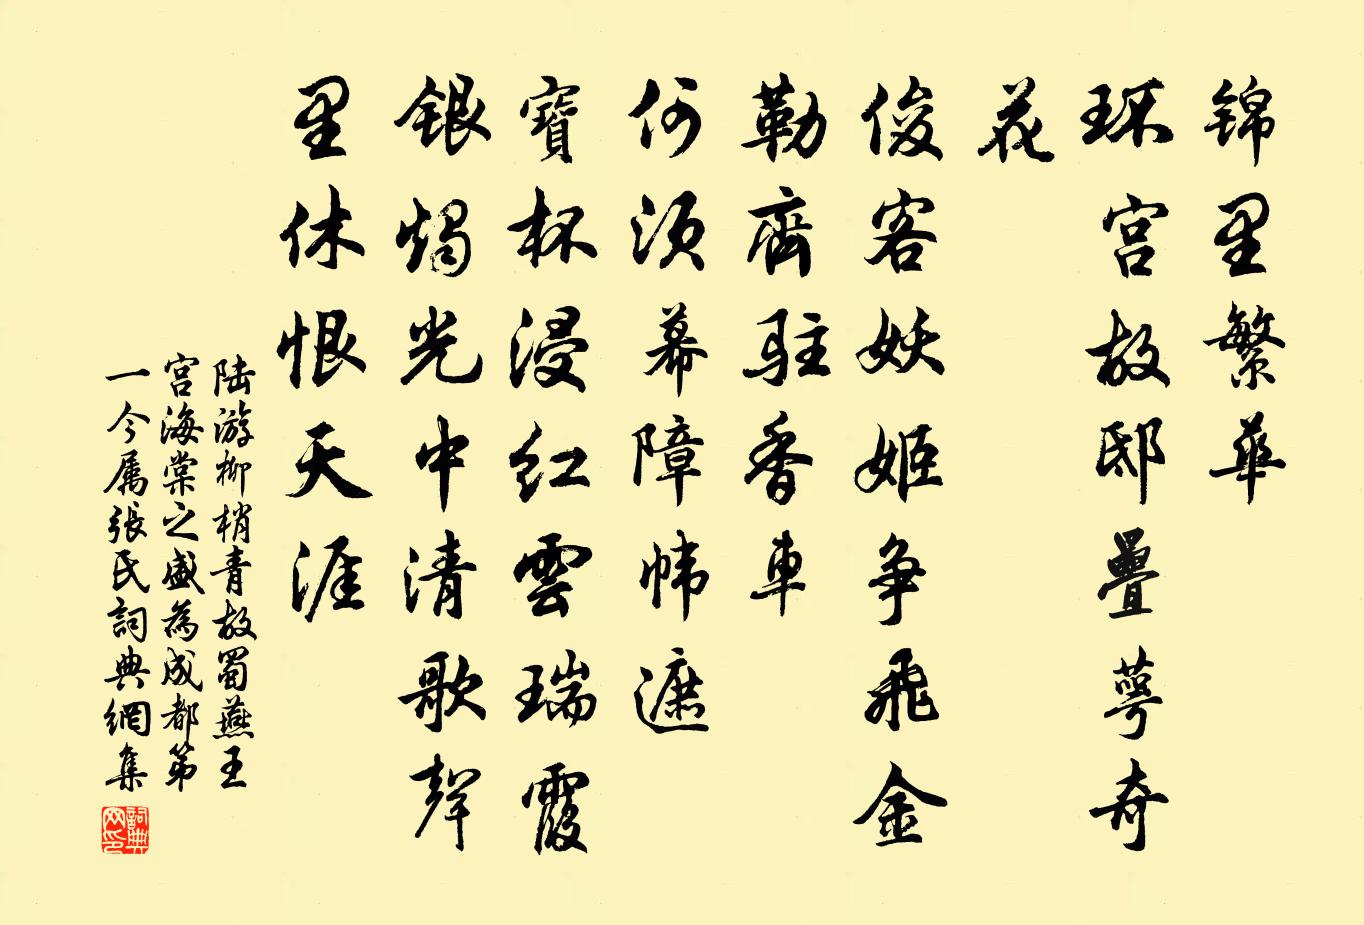 锦里繁華
环宫故邸疊萼奇
花
俊客妖姬争飛金
勒齊駐香車
何须幕障幃遮
寶杯浸红雲瑞霞
银燭光中清歌聲
里休恨天涯
陆游柳梢青故蜀燕王
宫海棠之盛為成都第
一今属張氏詞典網集
詞典
网印